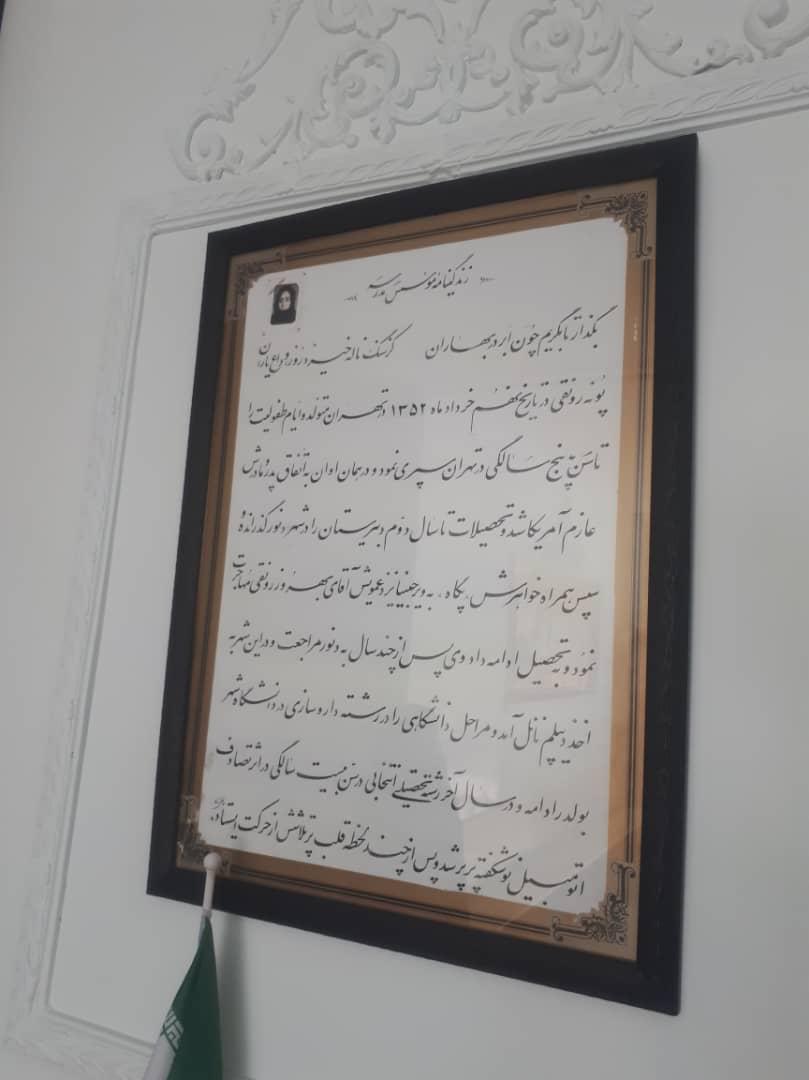 زندگینامه مؤسس مدرسه
بگذار تا بگریم چون ابر در بهاران کز سنگ ناله خیزد روز وداع یاران
پونه رونقی در تاریخ نهم خرداد ماه ۱۳۵۲ در تهران متولد و ایام طفولیت را
تا سن پنج سالگی در تهران سپری نمود و در همان اوان به اتفاق پدر و مادرش
عازم آمریکا شد و تحصیلات تا سال دوم دبیرستان را در شهر دنور گذرانده و
سپس همراه خواهرش، پگاه، به ویرجینیا نزد عمویش آقای بهروز رونقی مهاجرت
نمود و به تحصیل ادامه داد وی پس از چند سال به دنور مراجعت و در این شهر به
اخذ دیپلم نائل آمد و مراحل دانشگاهی را در رشته داروسازی در دانشگاه شهر
بولدر ادامه و در سال آخر رشته تحصیلی انتخابی در سن بیست سالگی در اثر تصادف
اتومبیل نوشکفته پرپر شد و پس از چند لحظه قلب پرتلاشش از حرکت ایستاد.